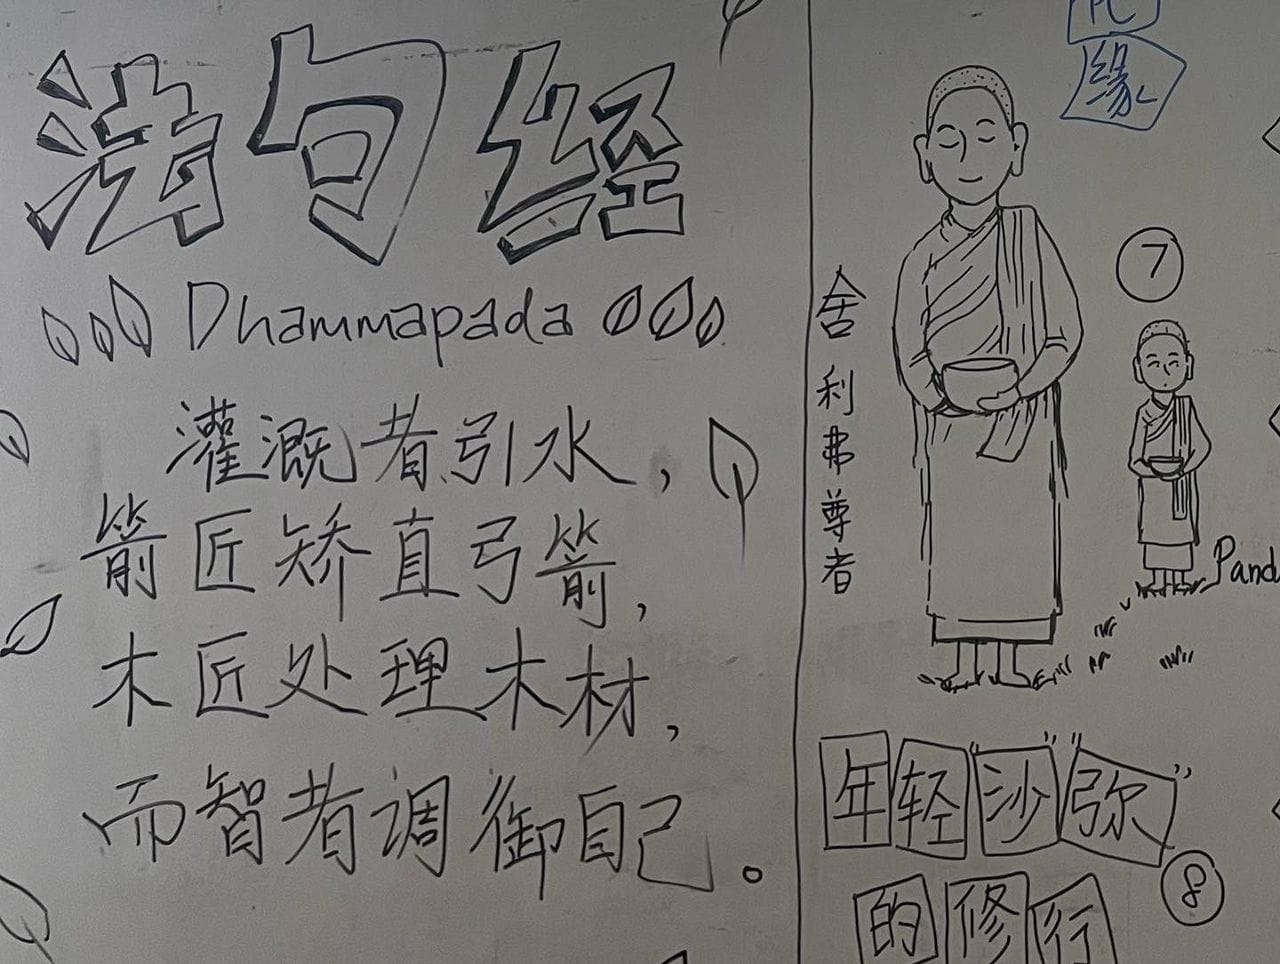 法句经
Dhammapada
灌溉者引水，
箭匠矫直弓箭，
木匠处理木材，
而智者调御自己。
缘
舍利弗尊者
7
Pand
年轻"沙弥"
的修行
8